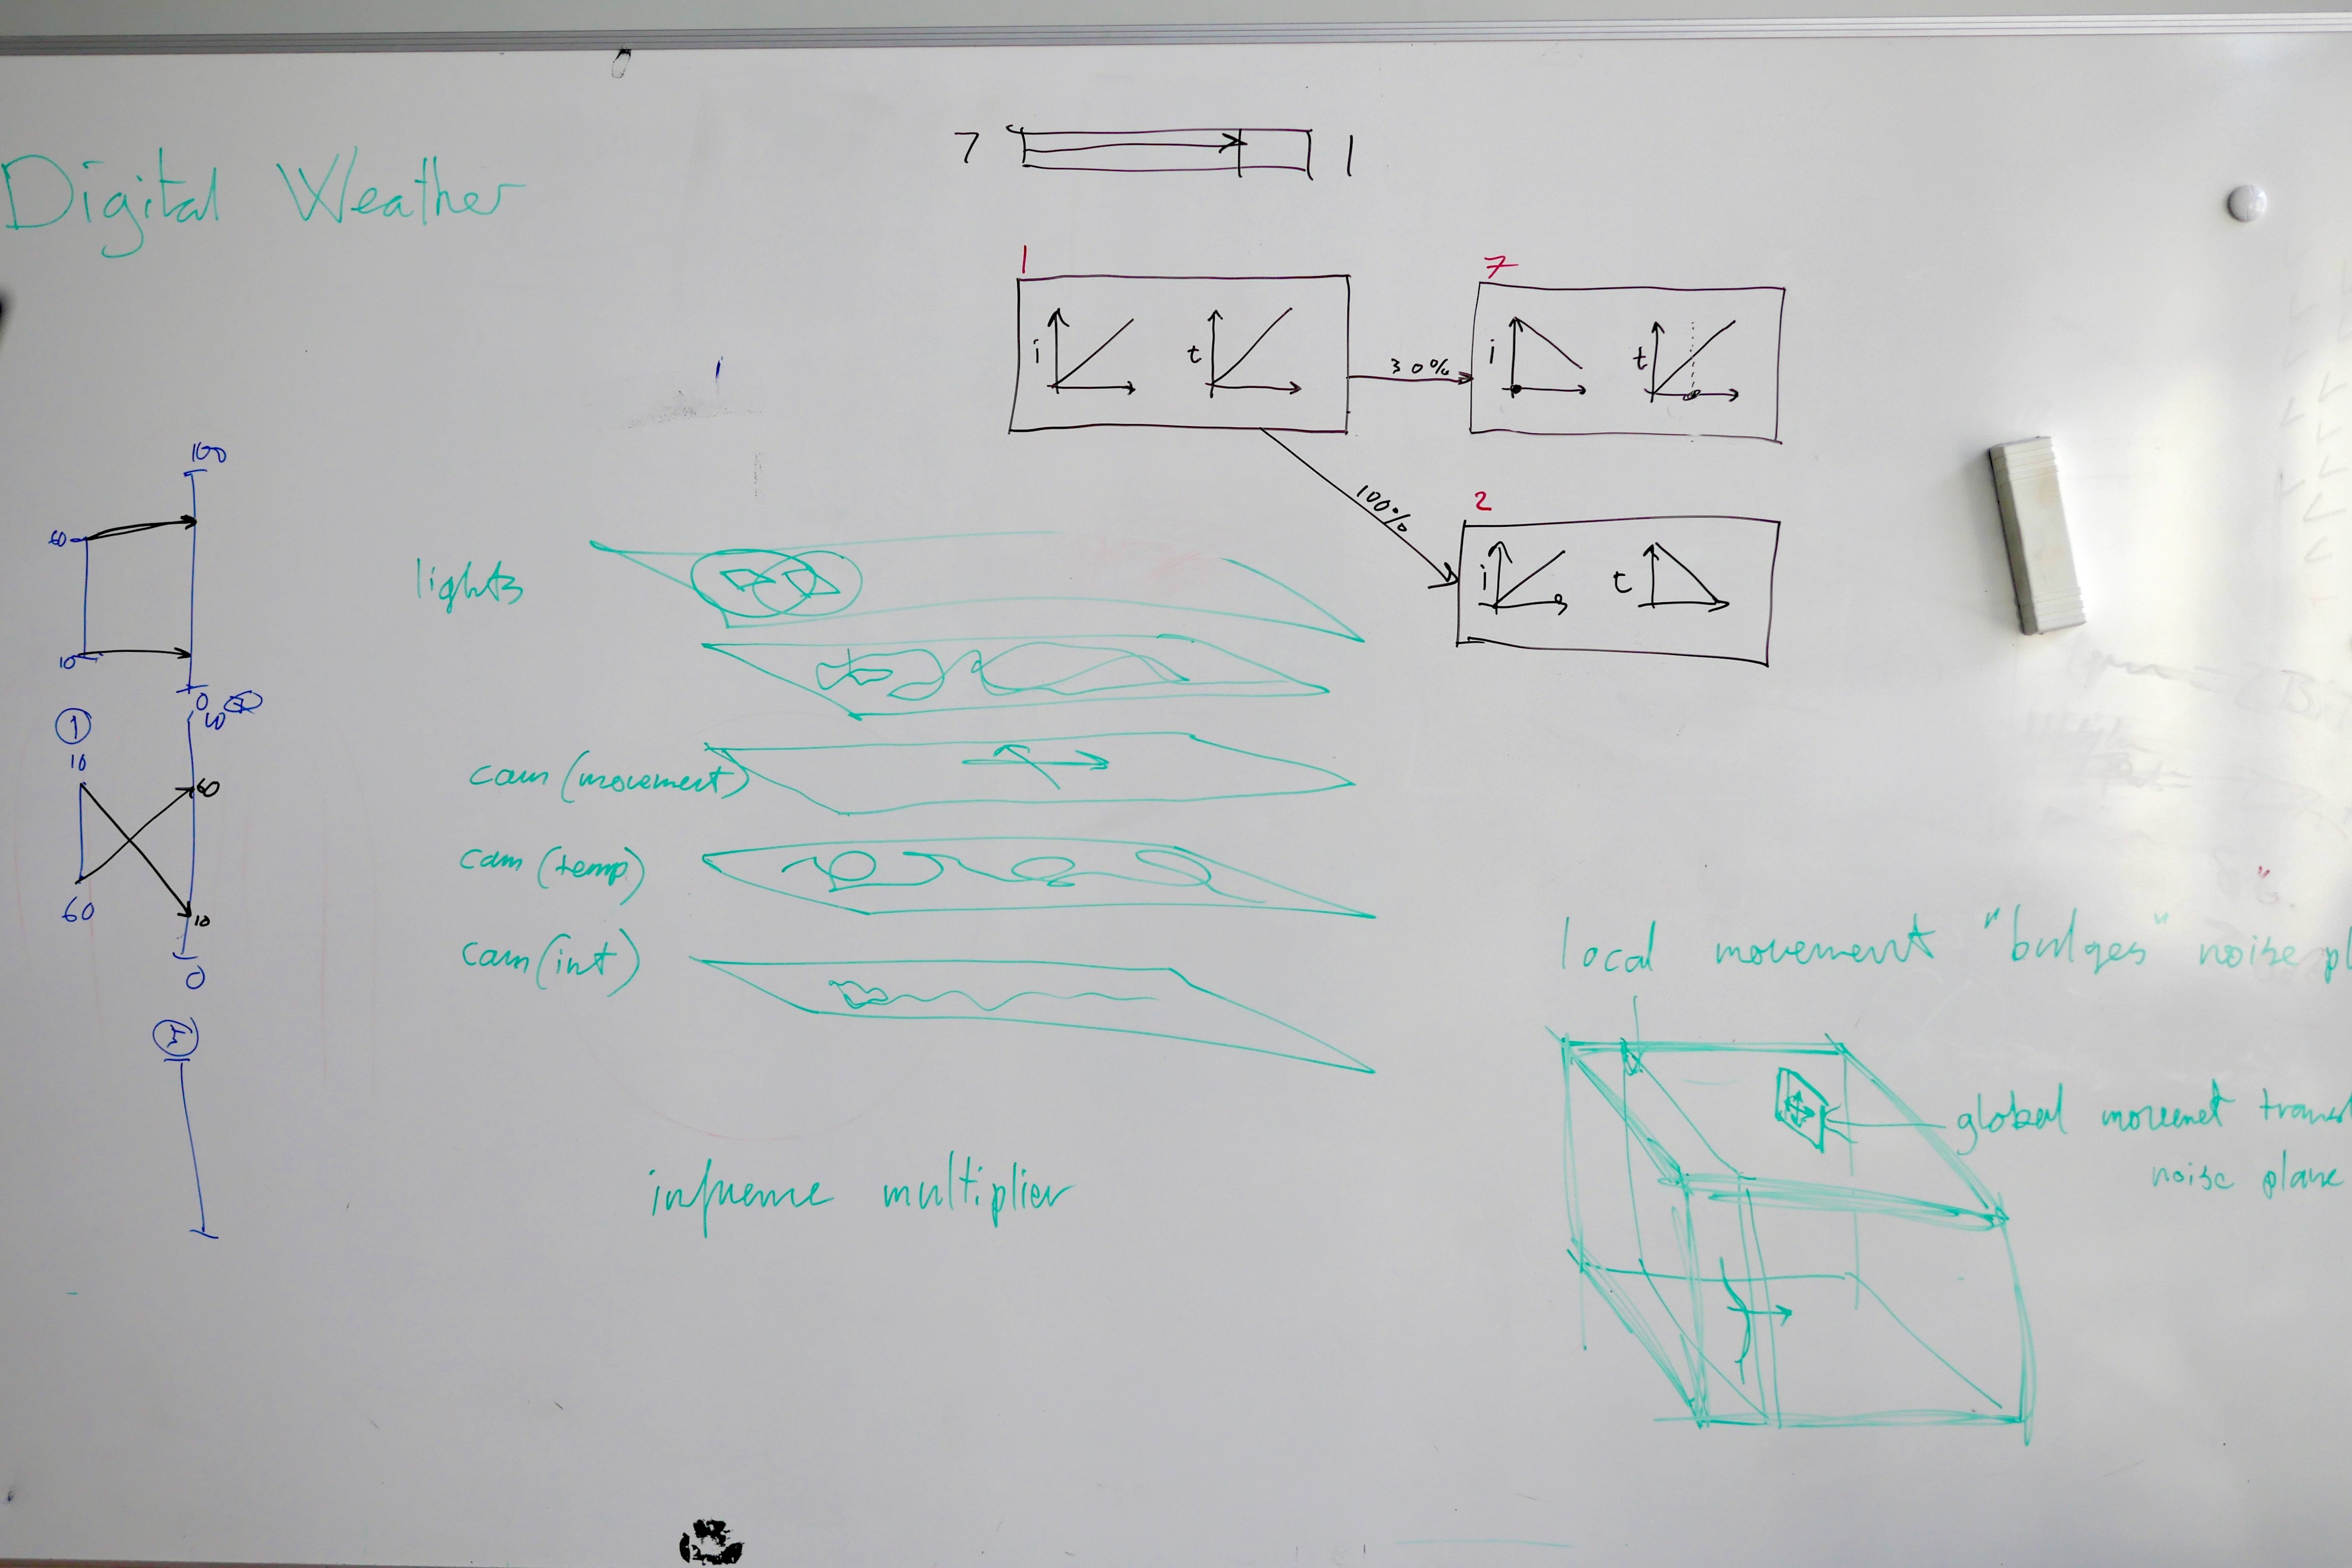 Digital Weather
7 1
1
i t
30%
7
i t
100%
2
i t
100
60
10
0
1
10
60
60
10
0
lights
cam (movement)
cam (temp)
cam (int)
influence multiplier
local movement "bulges" noise pl
global movemet transl
noise plane